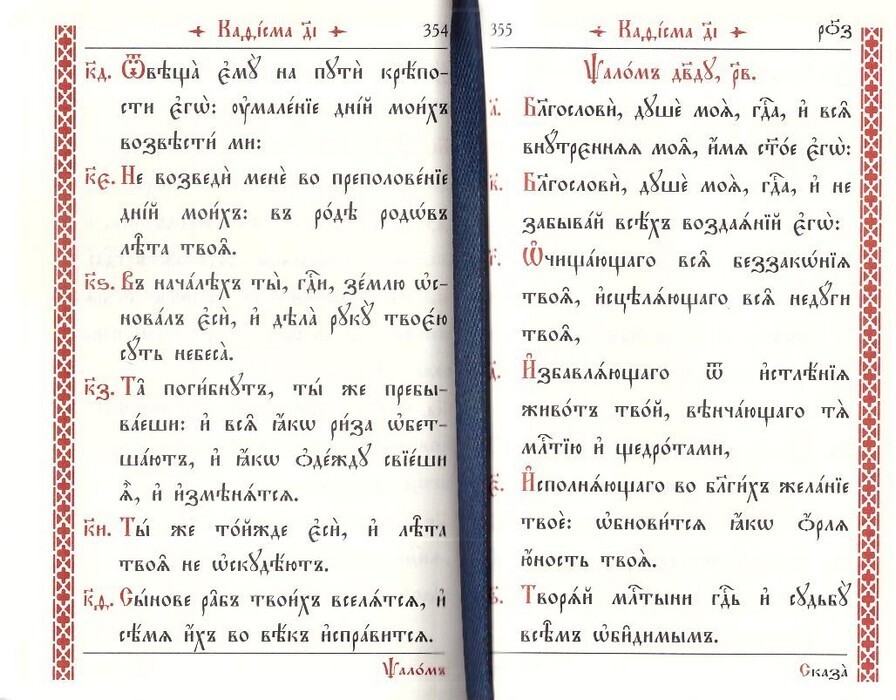 Каѳі́сма д҃і 354
к҃д. Ѿвѣща̀ є҆мꙋ̀ на пꙋтѝ крѣ́по-
сти є҆гѡ̀: ᲂу҆мале́нїе дні́й мои́хъ
возвѣстѝ ми:
к҃є. Не возведѝ менѐ во преполове́нїе
дні́й мои́хъ: въ ро́дѣ родѡ́въ
лѣ̑та твоѧ̑.
к҃ѕ. Въ нача́лѣхъ ты̀, гдⷭ҇и, зе́млю ѡ҆с-
нова́лъ є҆сѝ, и҆ дѣла̀ рꙋкꙋ̀ твоє́ю
сꙋ́ть небеса̀.
к҃з. Та̑ поги́бнꙋтъ, ты́ же пребы-
ва́еши: и҆ всѧ̑ ꙗ҆́кѡ ри́за ѡ҆бет-
ша́ютъ, и҆ ꙗ҆́кѡ ѻ҆де́ждꙋ свїе́ши
ѧ҆̀, и҆ и҆змѣнѧ́тсѧ.
к҃и. Ты́ же то́йжде є҆сѝ, и҆ лѣ̑та
твоѧ̑ не ѡ҆скꙋдѣ́ютъ.
к҃ѳ. Сы́нове ра̑бъ твои́хъ вселѧ́тсѧ, и҆
сѣ́мѧ и҆́хъ во вѣ́къ и҆спра́витсѧ.
Ѱало́мъ
355 Каѳі́сма д҃і ро҃з
Ѱало́мъ дв҃дꙋ, р҃в.
Блгⷭ҇ословѝ, дꙋшѐ моѧ̀, гдⷭ҇а, и҆ всѧ̑
внꙋ́трєннѧѧ моѧ̑, и҆́мѧ ст҃о́е є҆гѡ̀:
Блгⷭ҇ословѝ, дꙋшѐ моѧ̀, гдⷭ҇а, и҆ не
забыва́й всѣ́хъ воздаѧ́нїй є҆гѡ̀:
Ѡ҆чища́ющаго всѧ̑ беззакѡ́нїѧ
твоѧ̑, и҆сцѣлѧ́ющаго всѧ̑ недꙋ́ги
твоѧ̑,
И҆збавлѧ́ющаго ѿ и҆стлѣ́нїѧ
живо́тъ тво́й, вѣнча́ющаго тѧ̀
млⷭ҇тїю и҆ щедро́тами,
И҆сполнѧ́ющаго во бл҃ги́хъ жела́нїе
твоѐ: ѡ҆бнови́тсѧ ꙗ҆́кѡ ѻ҆́рлѧ
ю҆́ность твоѧ̀.
Творѧ́й млⷭ҇тыни гдⷭ҇ь и҆ сꙋдьбꙋ̀
всѣ̑мъ ѡ҆би̑димымъ.
Сказа̀